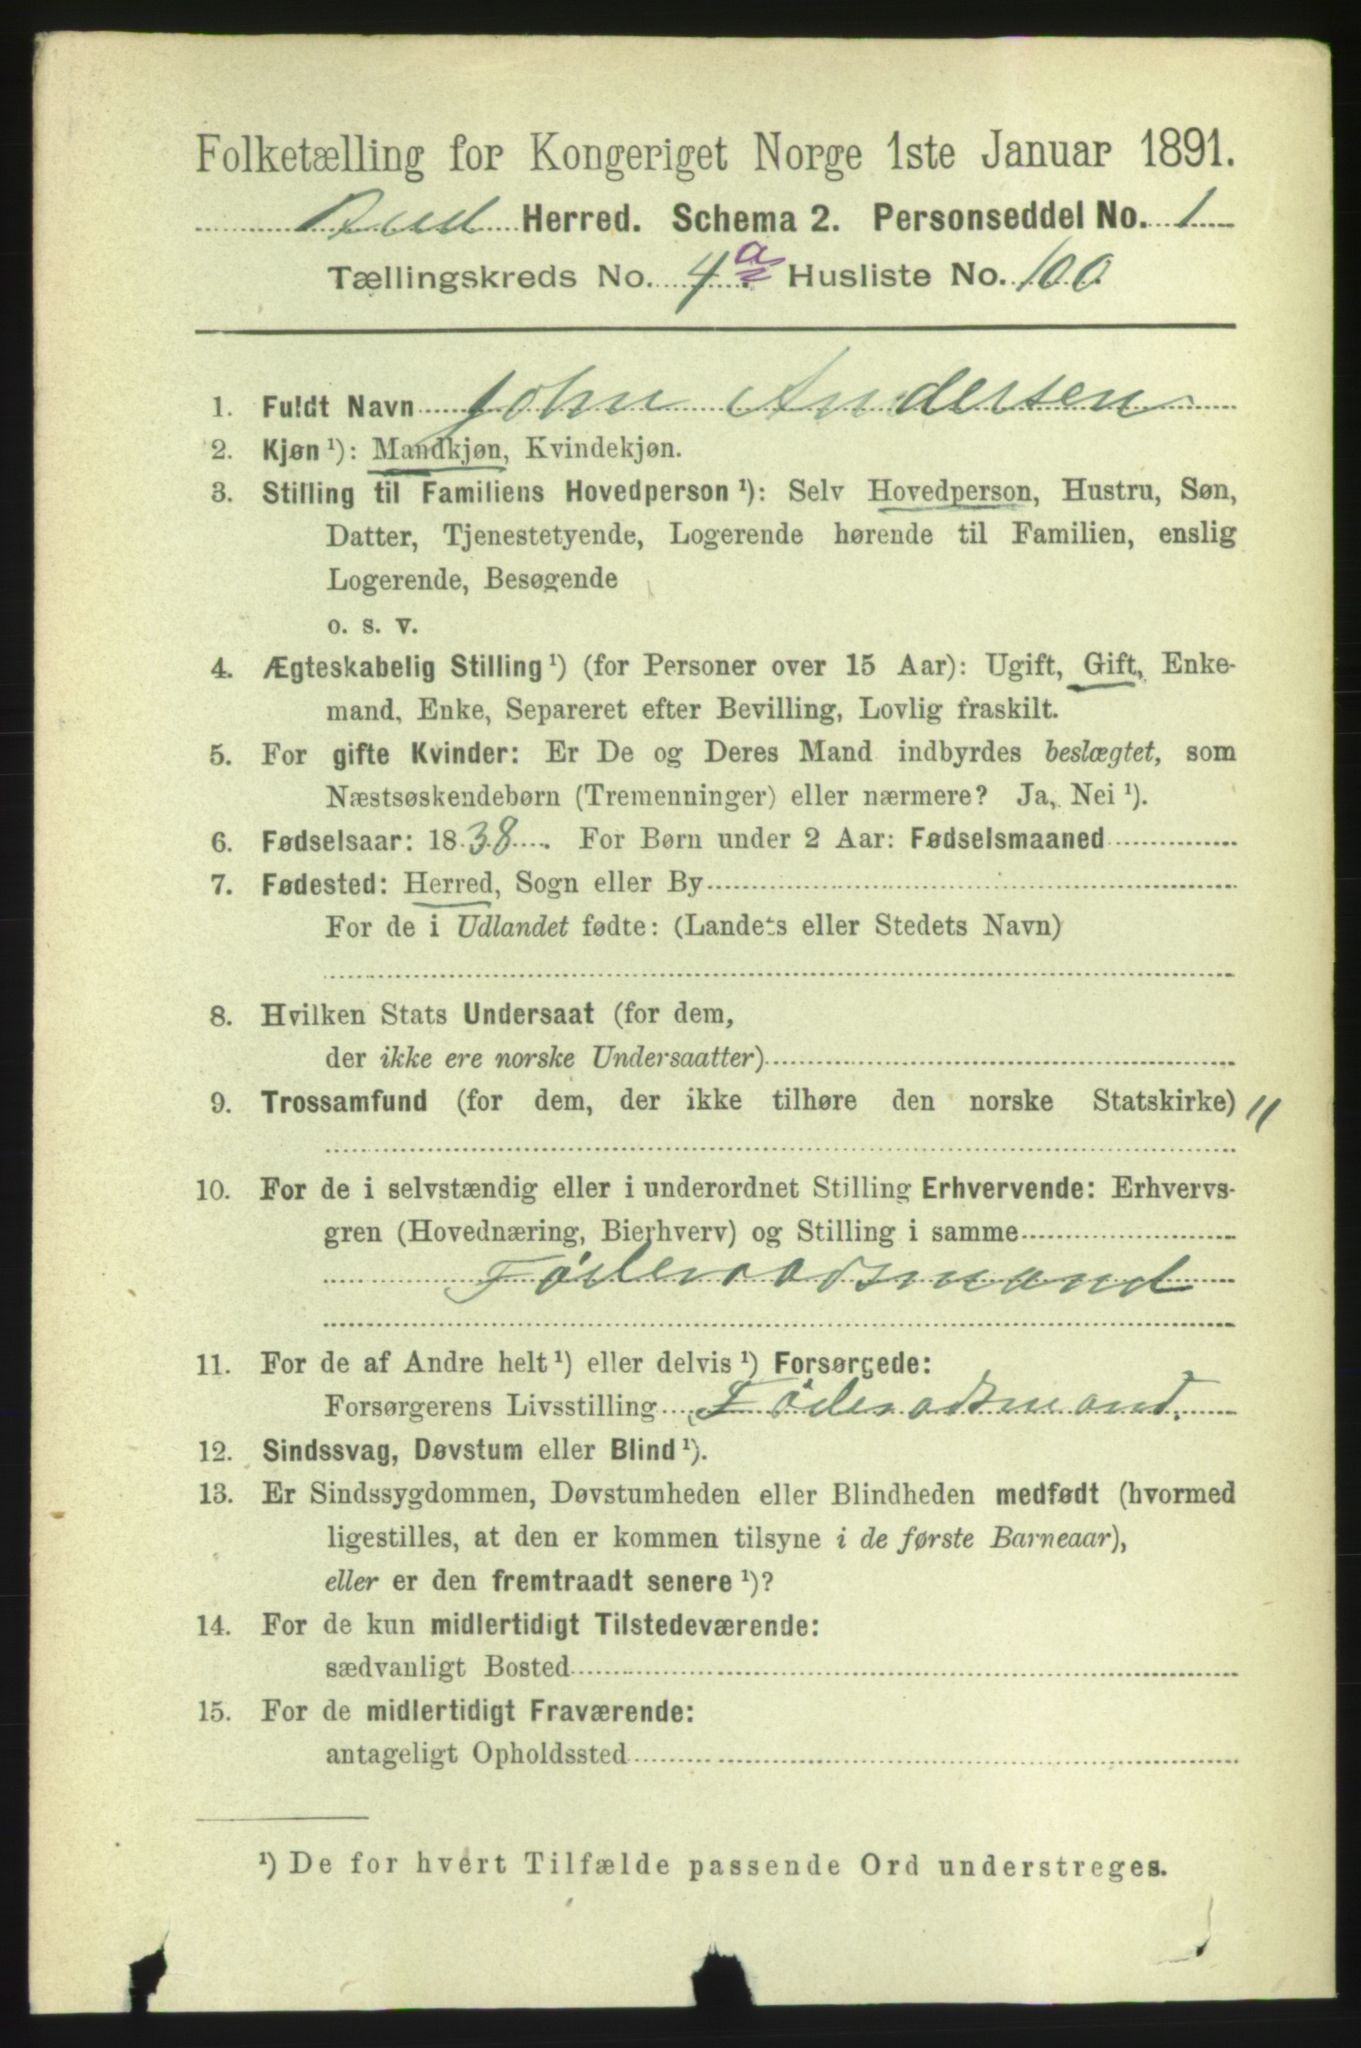 Folketælling for Kongeriget Norge 1ste Januar 1891.
Bud Herred. Schema 2. Personseddel No. 1
Tællingskreds No. 4a Husliste No. 100
1. Fuldt Navn John Andersen
2. Kjøn¹): Mandkjøn, Kvindekjøn.
3. Stilling til Familiens Hovedperson¹): Selv Hovedperson, Hustru, Søn,
Datter, Tjenestetyende, Logerende hørende til Familien, enslig
Logerende, Besøgende
o. s. v.
4. Ægteskabelig Stilling¹) (for Personer over 15 Aar): Ugift, Gift, Enke-
mand, Enke, Separeret efter Bevilling, Lovlig fraskilt.
5. For gifte Kvinder: Er De og Deres Mand indbyrdes beslægtet, som
Næstsøskendebørn (Tremenninger) eller nærmere? Ja, Nei¹).
6. Fødselsaar: 1838. For Børn under 2 Aar: Fødselsmaaned
7. Fødested: Herred, Sogn eller By
For de i Udlandet fødte: (Landets eller Stedets Navn)
8. Hvilken Stats Undersaat (for dem,
der ikke ere norske Undersaatter)
9. Trossamfund (for dem, der ikke tilhøre den norske Statskirke) 11
10. For de i selvstændig eller i underordnet Stilling Erhvervende: Erhvervs-
gren (Hovednæring, Bierhverv) og Stilling i samme
Föderaadsmand
11. For de af Andre helt¹) eller delvis¹) Forsørgede:
Forsørgerens Livsstilling Föderaadsmand.
12. Sindssvag, Døvstum eller Blind¹).
13. Er Sindssygdommen, Døvstumheden eller Blindheden medfødt (hvormed
ligestilles, at den er kommen tilsyne i de første Barneaar),
eller er den fremtraadt senere¹)?
14. For de kun midlertidigt Tilstedeværende:
sædvanligt Bosted
15. For de midlertidigt Fraværende:
antageligt Opholdssted
¹) De for hvert Tilfælde passende Ord understreges.